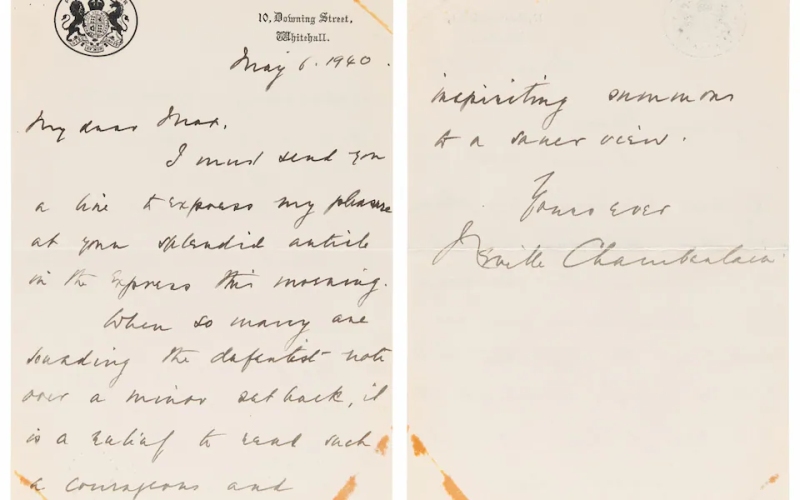 10, Downing Street,
Whitehall.
May 6. 1940.
My dear Max,
I must send you
a line to express my pleasure
at your splendid article
in the Express this morning.
When so many are
sounding the defeatist note
over a minor setback, it
is a relief to read such
a courageous and
inspiriting summons
to a saner view.
Yours ever
Neville Chamberlain.